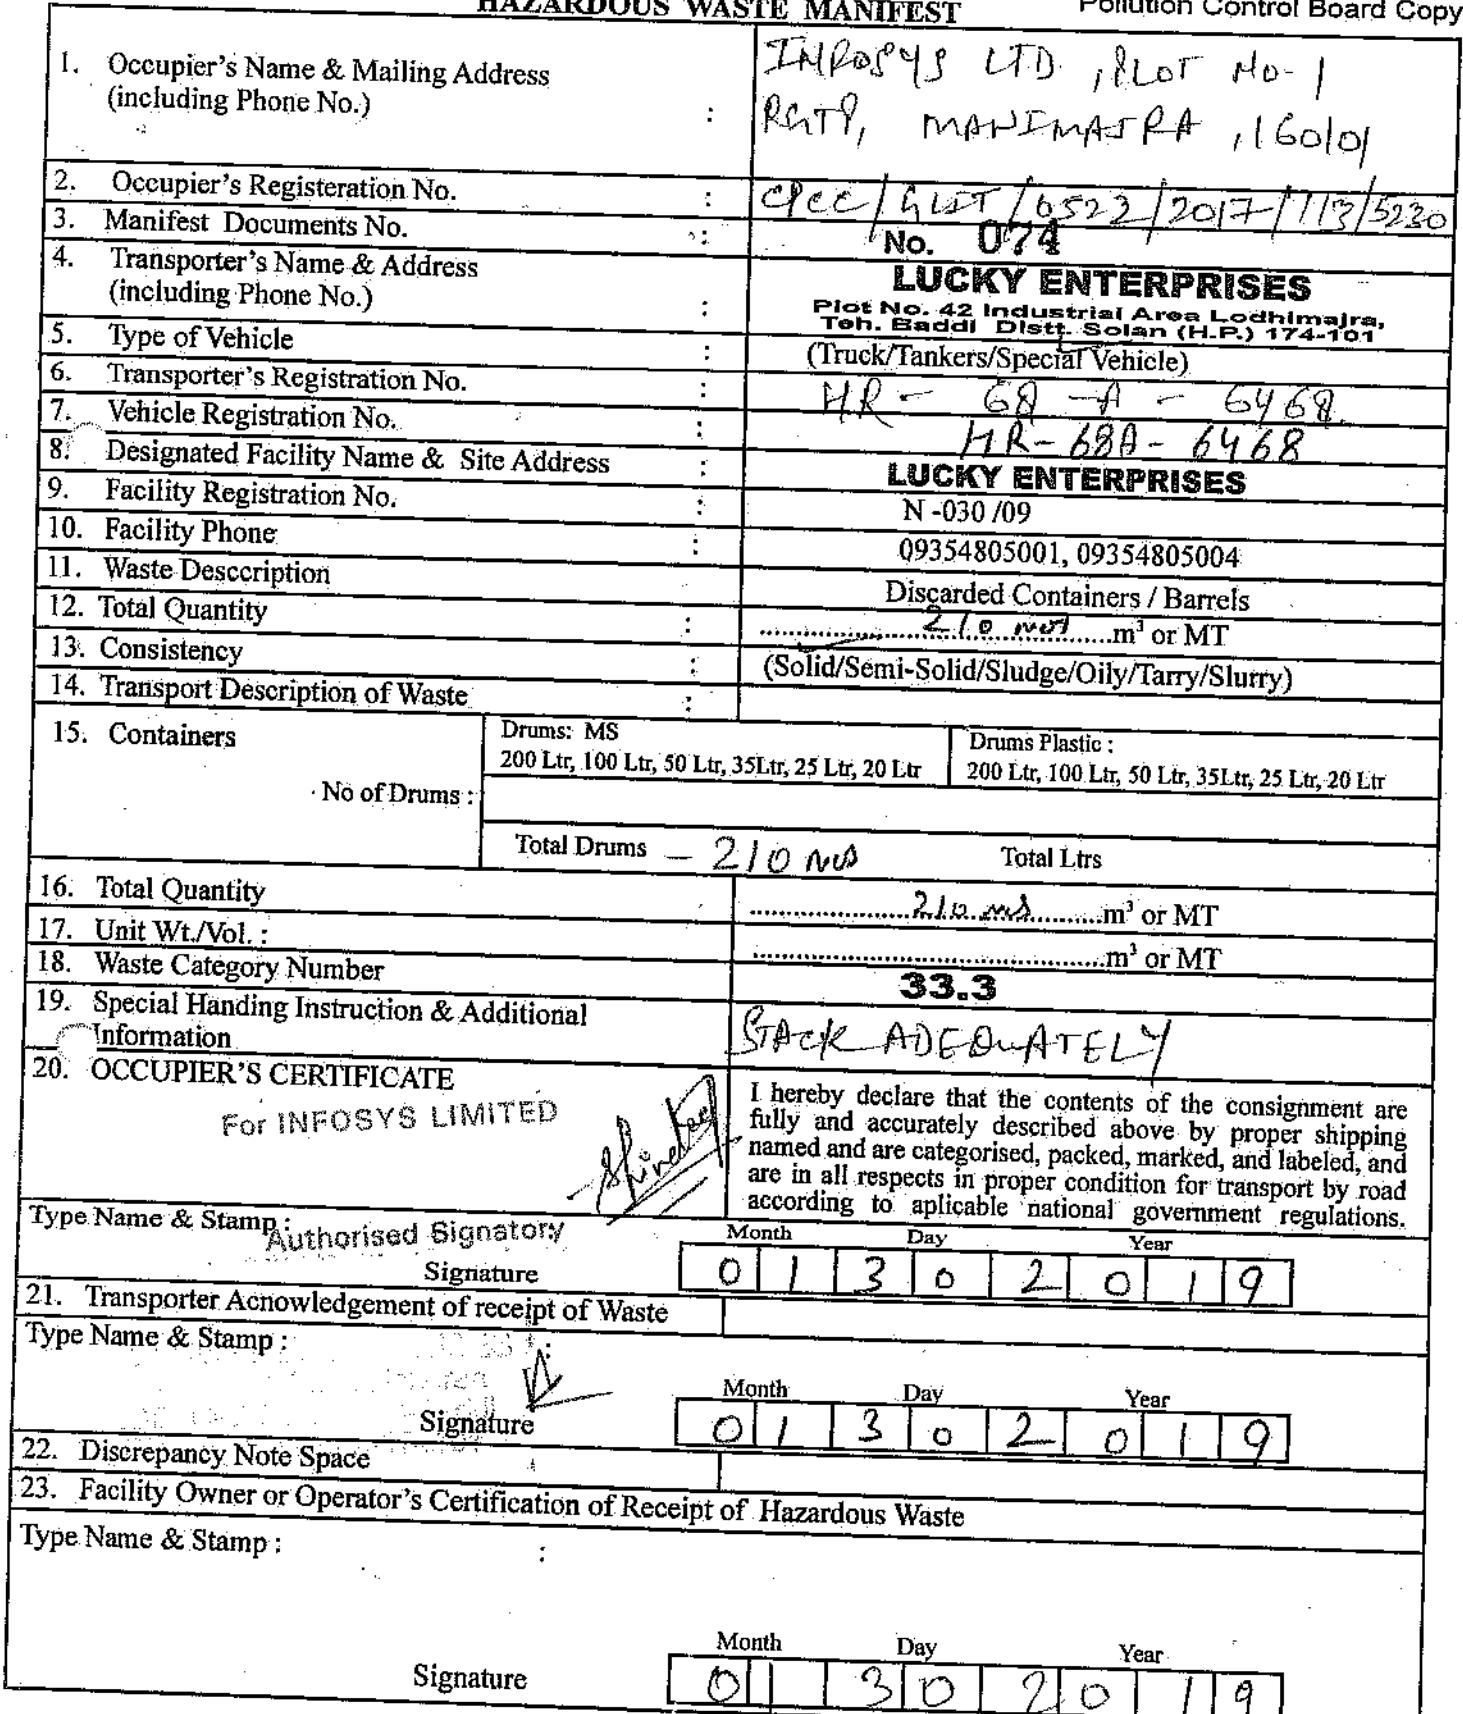 HAZARDOUS WASTE MANIFEST
Pollution Control Board Copy
1. Occupier's Name & Mailing Address
(including Phone No.) :
INFOSYS LTD., PLOT NO-1
RGTP, MANIMAJRA, 160101
2. Occupier's Registeration No. : CPCC/ /0522/2017/113/5230
3. Manifest Documents No. : No. 074
4. Transporter's Name & Address
(including Phone No.) :
LUCKY ENTERPRISES
Plot No. 42 Industrial Area Lodhimajra,
Teh. Baddi Distt. Solan (H.P.) 174-101
5. Type of Vehicle : (Truck/Tankers/Special Vehicle)
6. Transporter's Registration No. : HR - 68 - A - 6468
7. Vehicle Registration No. : HR-68A-6468
8. Designated Facility Name & Site Address : LUCKY ENTERPRISES
9. Facility Registration No. : N -030 /09
10. Facility Phone : 09354805001, 09354805004
11. Waste Desccription Discarded Containers / Barrels
12. Total Quantity : 210 nos m³ or MT
13. Consistency : (Solid/Semi-Solid/Sludge/Oily/Tarry/Slurry)
14. Transport Description of Waste :
15. Containers
Drums: MS
200 Ltr, 100 Ltr, 50 Ltr, 35Ltr, 25 Ltr, 20 Ltr
Drums Plastic :
200 Ltr, 100 Ltr, 50 Ltr, 35Ltr, 25 Ltr, 20 Ltr
No of Drums :
Total Drums - 210 nos Total Ltrs
16. Total Quantity 210 nos m³ or MT
17. Unit Wt./Vol. : m³ or MT
18. Waste Category Number 33.3
19. Special Handing Instruction & Additional
Information
STACK ADEQUATELY
20. OCCUPIER'S CERTIFICATE
For INFOSYS LIMITED
I hereby declare that the contents of the consignment are
fully and accurately described above by proper shipping
named and are categorised, packed, marked, and labeled, and
are in all respects in proper condition for transport by road
according to aplicable national government regulations.
Type Name & Stamp :
Authorised Signatory
Signature
Month Day Year
0 1 3 0 2 0 1 9
21. Transporter Acnowledgement of receipt of Waste
Type Name & Stamp : :
Signature
Month Day Year
0 1 3 0 2 0 1 9
22. Discrepancy Note Space
23. Facility Owner or Operator's Certification of Receipt of Hazardous Waste
Type Name & Stamp : :
Signature
Month Day Year
0 1 3 0 2 0 1 9